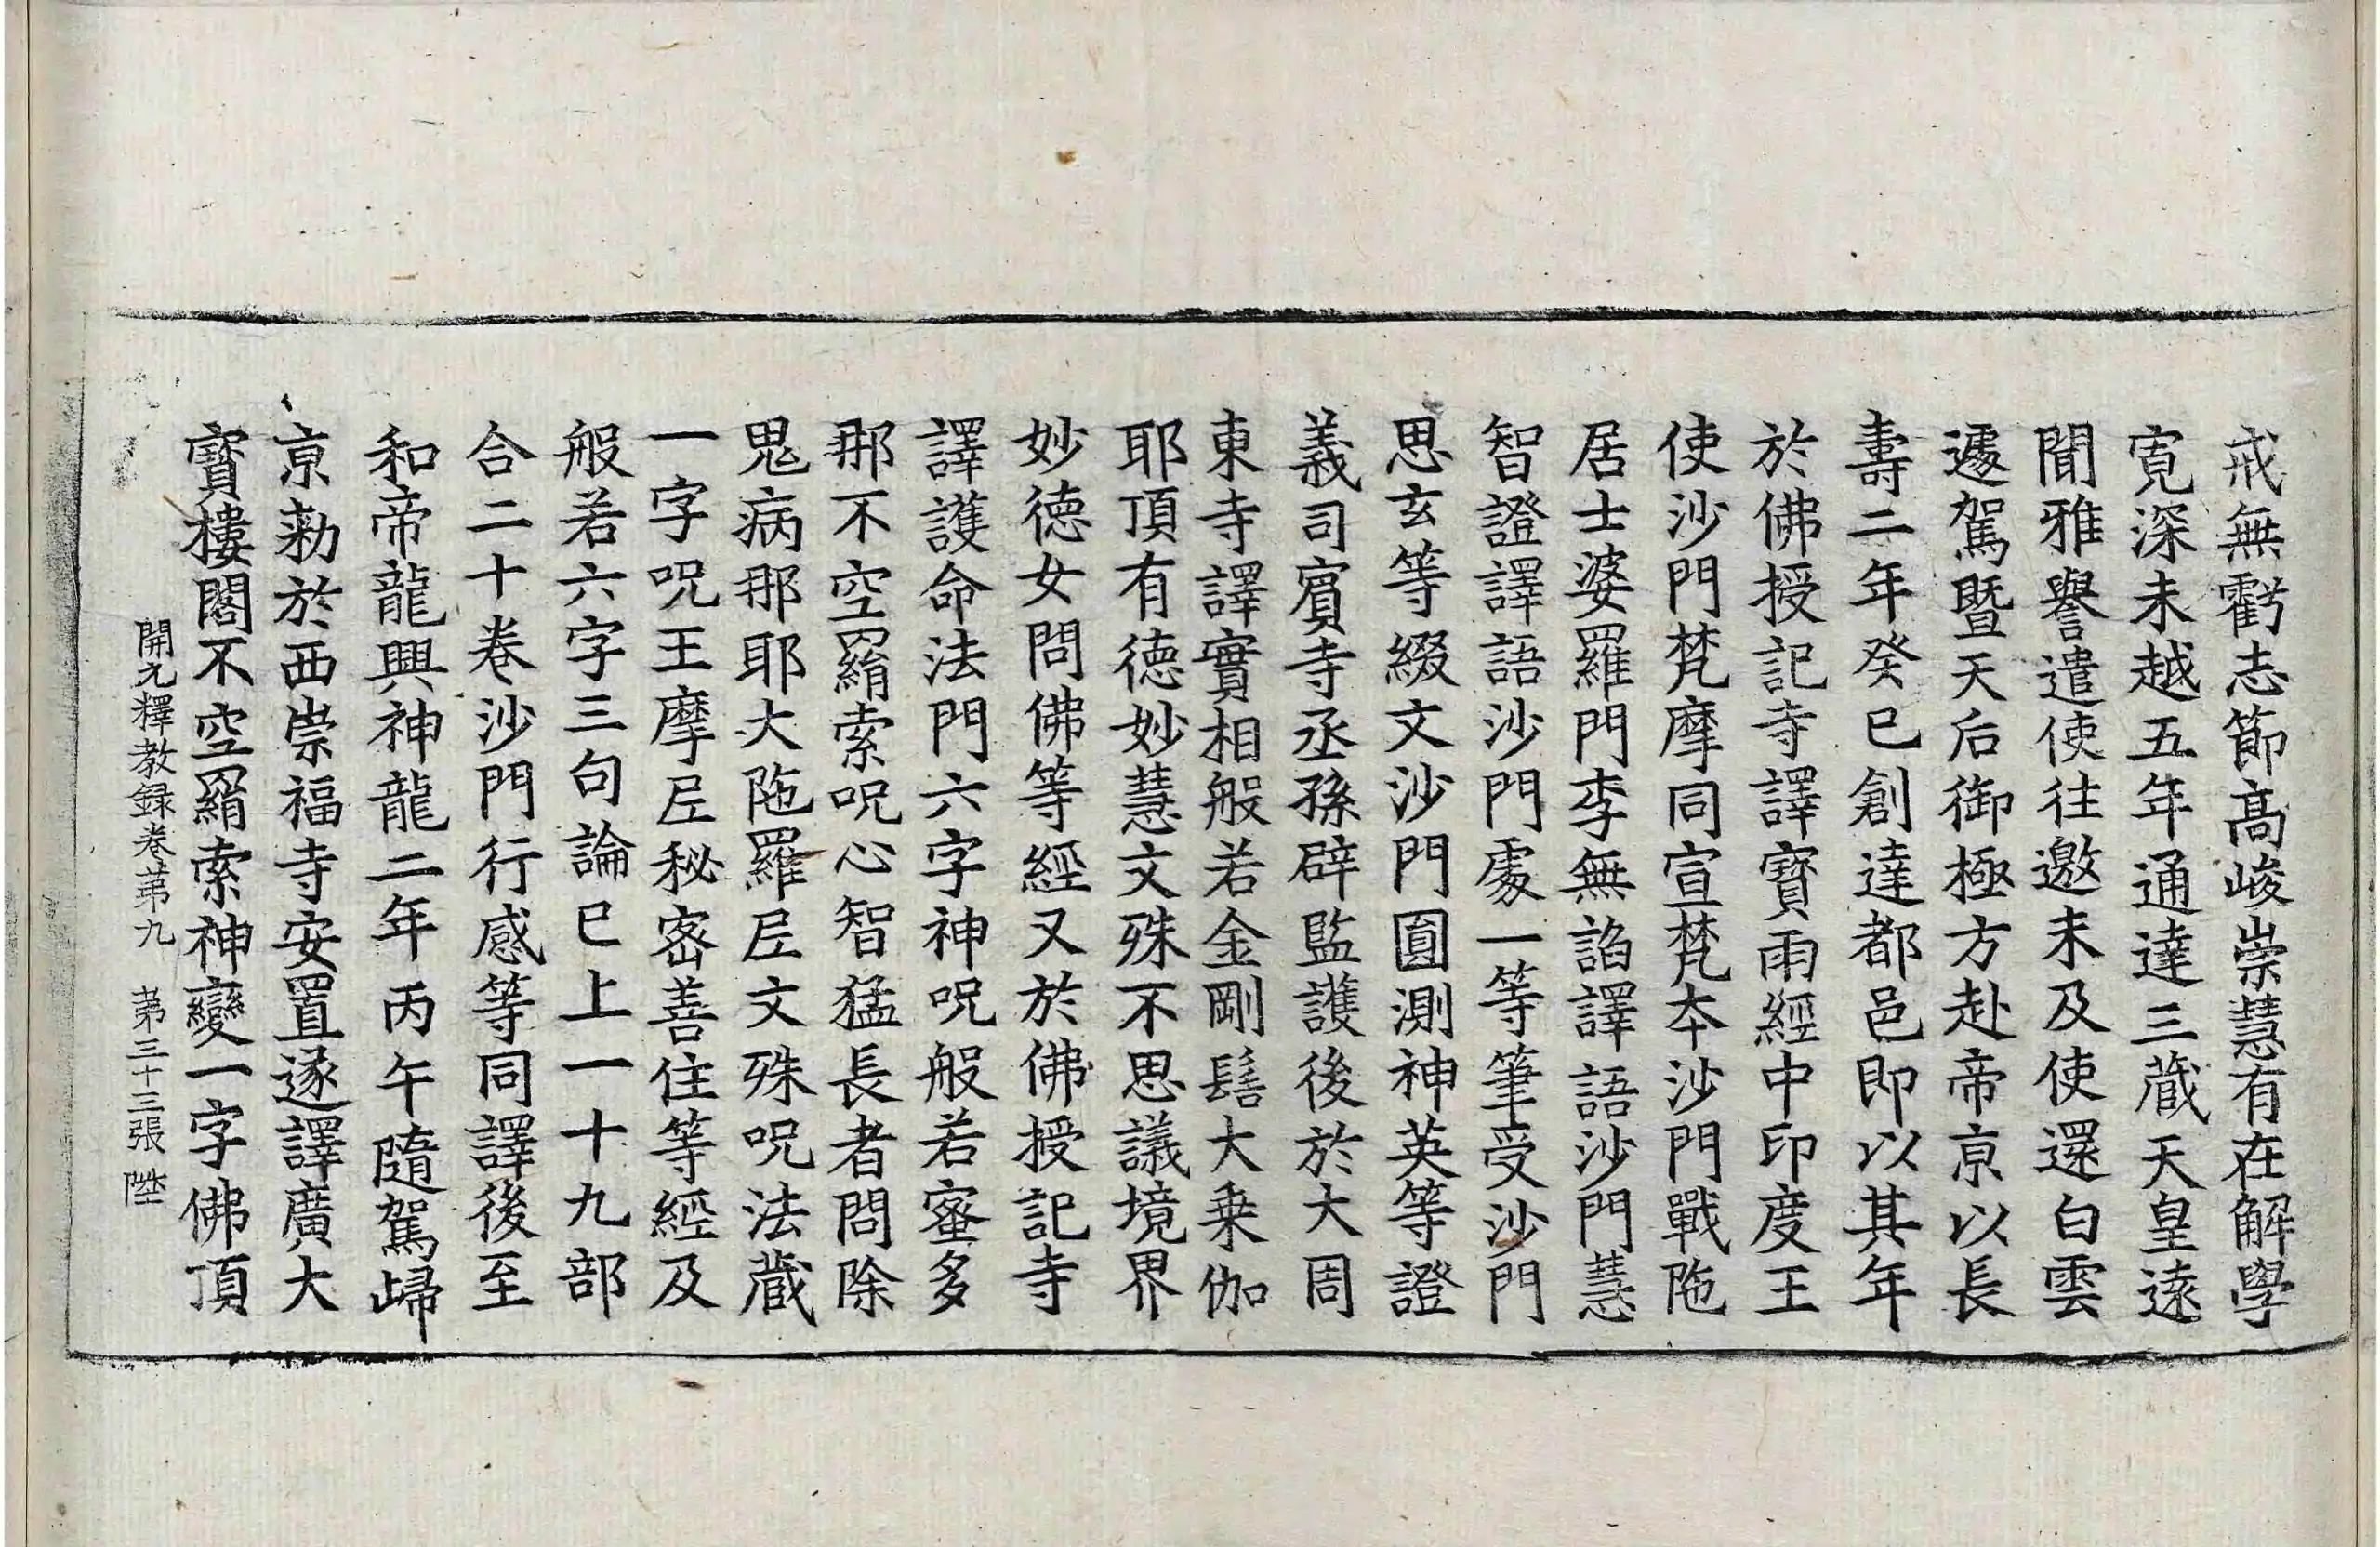 戒無虧志節髙峻崇慧有在解學
寛深未越五年通達三蔵天皇逺
聞雅譽遣使往邀未及使還白雲
遽駕暨天后御極方赴帝京以長
壽二年癸巳創達都邑即以其年
於佛授記寺譯寳雨經中印度王
使沙門梵摩同宣梵夲沙門戰陁
居士婆羅門李無謟譯語沙門慧
智證譯語沙門處一等筆受沙門
思玄等綴文沙門圎測神英等證
義司賔寺丞孫辟監護後於大周
東寺譯實相般若金剛髻大乗伽
耶頂有徳妙慧文殊不思議境界
妙徳女問佛等經又於佛授記寺
譯護命法門六字神呪般若蜜多
那不空羂索呪心智猛長者問除
鬼病那耶大陁羅尼文殊呪法蔵
一字呪王摩尼秘宻善住等經及
般若六字三句論巳上一十九部
合二十卷沙門行感等同譯後至
和帝龍興神龍二年丙午隨駕歸
京勑於西崇福寺安置遂譯廣大
寳樓閣不空羂索神變一字佛頂
開元釋教録卷苐九 苐三十三張 陞